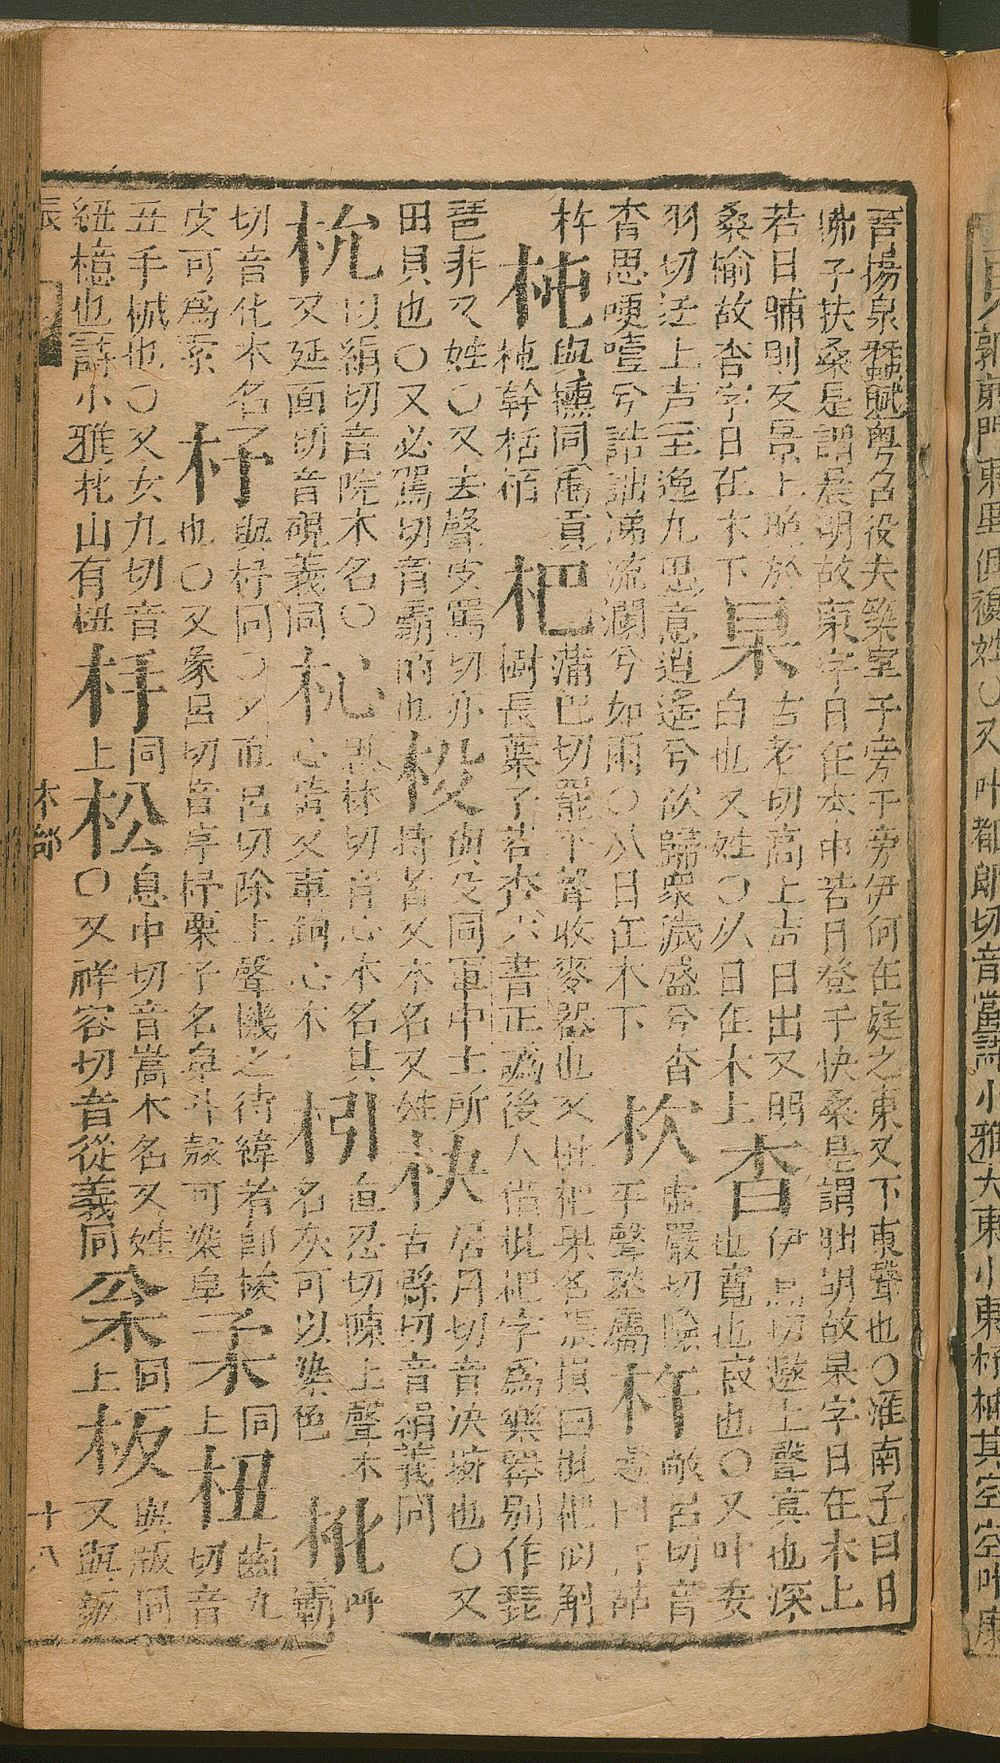 晉楊泉蠶賦粤召役夫築室于旁于旁伊何在庭之東又下東聲也○淮南子曰日
佛于扶桑是謂晨明故東字日在木中若日登于扶桑是謂朏明故杲字日在木上
若日晡則反景上照於
桑榆故杳字日在木下
杲
古老切高上出日出又明
白也又姓○从日在木上
杳
伊鳥切邀上聲寘也深
也寬也寂也○又叶妄
羽切迂上声王逸九思意逍遙兮欲歸衆濊盛兮杳
杳思哽噎兮詰詘涕流瀾兮如雨○从日在木下
杴
虛嚴切險
平聲杴屬
杵
敞呂切音
杵與櫄同禹貢
杶幹栝栢
杶
杷
蒲巴切罷下聲收麥器也又枇杷果名張揖曰枇杷似斛
樹長葉子若杏六書正譌後人借枇杷字爲樂噐別作琵
琶非又姓○又去聲皮駡切亦
田具也○又必駡切音霸
杸
與殳同軍中士所
持者又木名又姓
枤
居月切音決墢也○又
古縣切音絹義同
杬
以絹切音院木名○
又延面切音硯義同
杺
思林切音心木名其
心黃又車鉤心木
杊
直忍切陳上聲木
名灰可以染色
枇
呼霸
切音化木名
皮可爲索
杼
與杼同○又直呂切除上聲機之持緯者卽梭
也○又象呂切音序杼栗子名皁斗殼可染皁
杍
同上
杻
齒九切音
丑手械也○又女九切音
紐檍也詩小雅北山有杻
杽
同上
松
息中切音嵩木名又姓
○又祥容切音從義同
枀
同上
板
與版同
又與鈑
辰
木部
十八
東里
複姓○又叶都郎切音當詩小雅大東小東杼柚其空空叶康